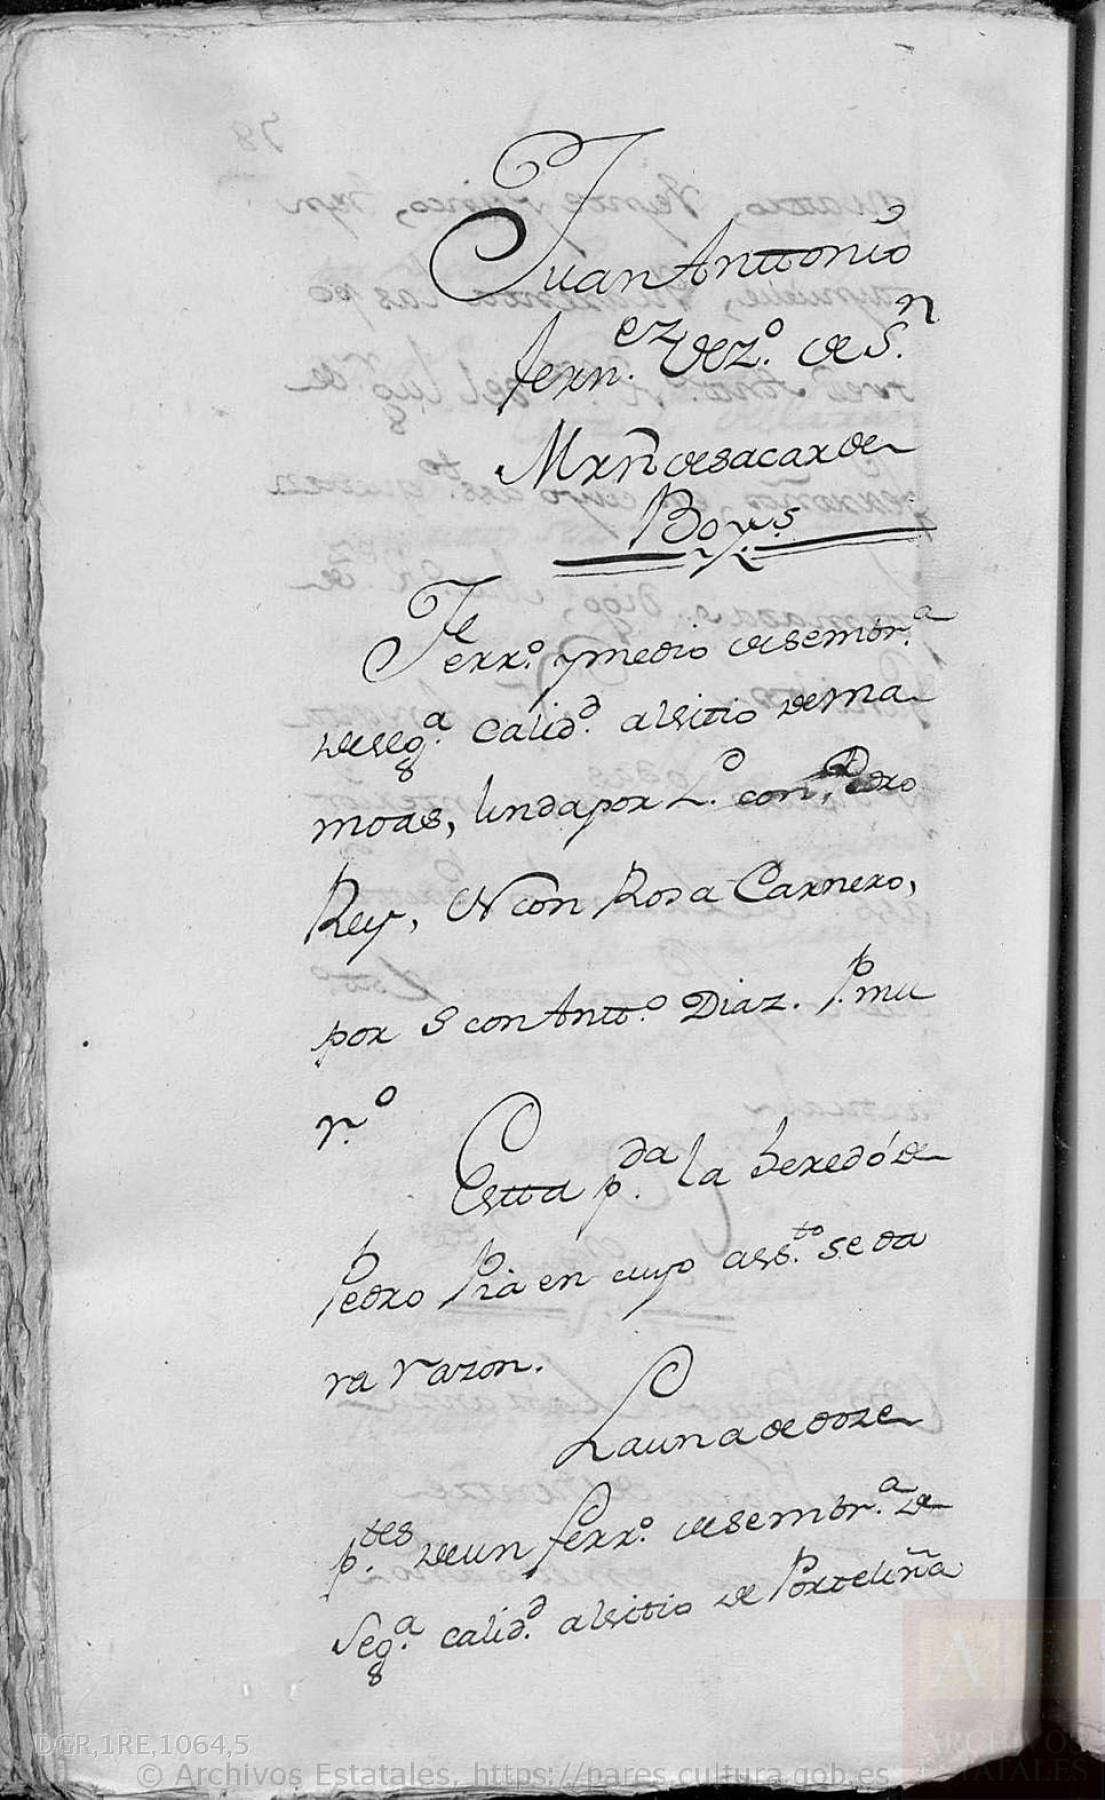 Juan Anttonio
fern.ez Vez.o de S.n
Mrñ de sacar de
Boy.s
Ferr.o y medio de sembr.a
de seg.a calid.d al sitio de ma
moas, linda por L. con Pedro
Rey, N con Rosa Carnero,
por S con Antt.o Diaz. P. mu
r.o
Estta p.da la heredó de
Pedro Pia en cuyo ass.to se da
ra razon.
La una de doze
p.tes de un ferr.o de sembr.a de
Seg.a calid.d al sitio de Porteliña
DGR,1RE,1064,5
© Archivos Estatales, https://pares.cultura.gob.es
AE
ARCHIVOS
ESTATALES